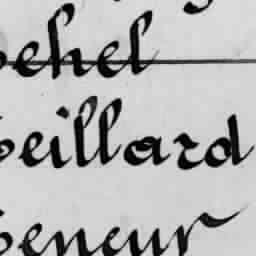 ehel
eillard
eneur